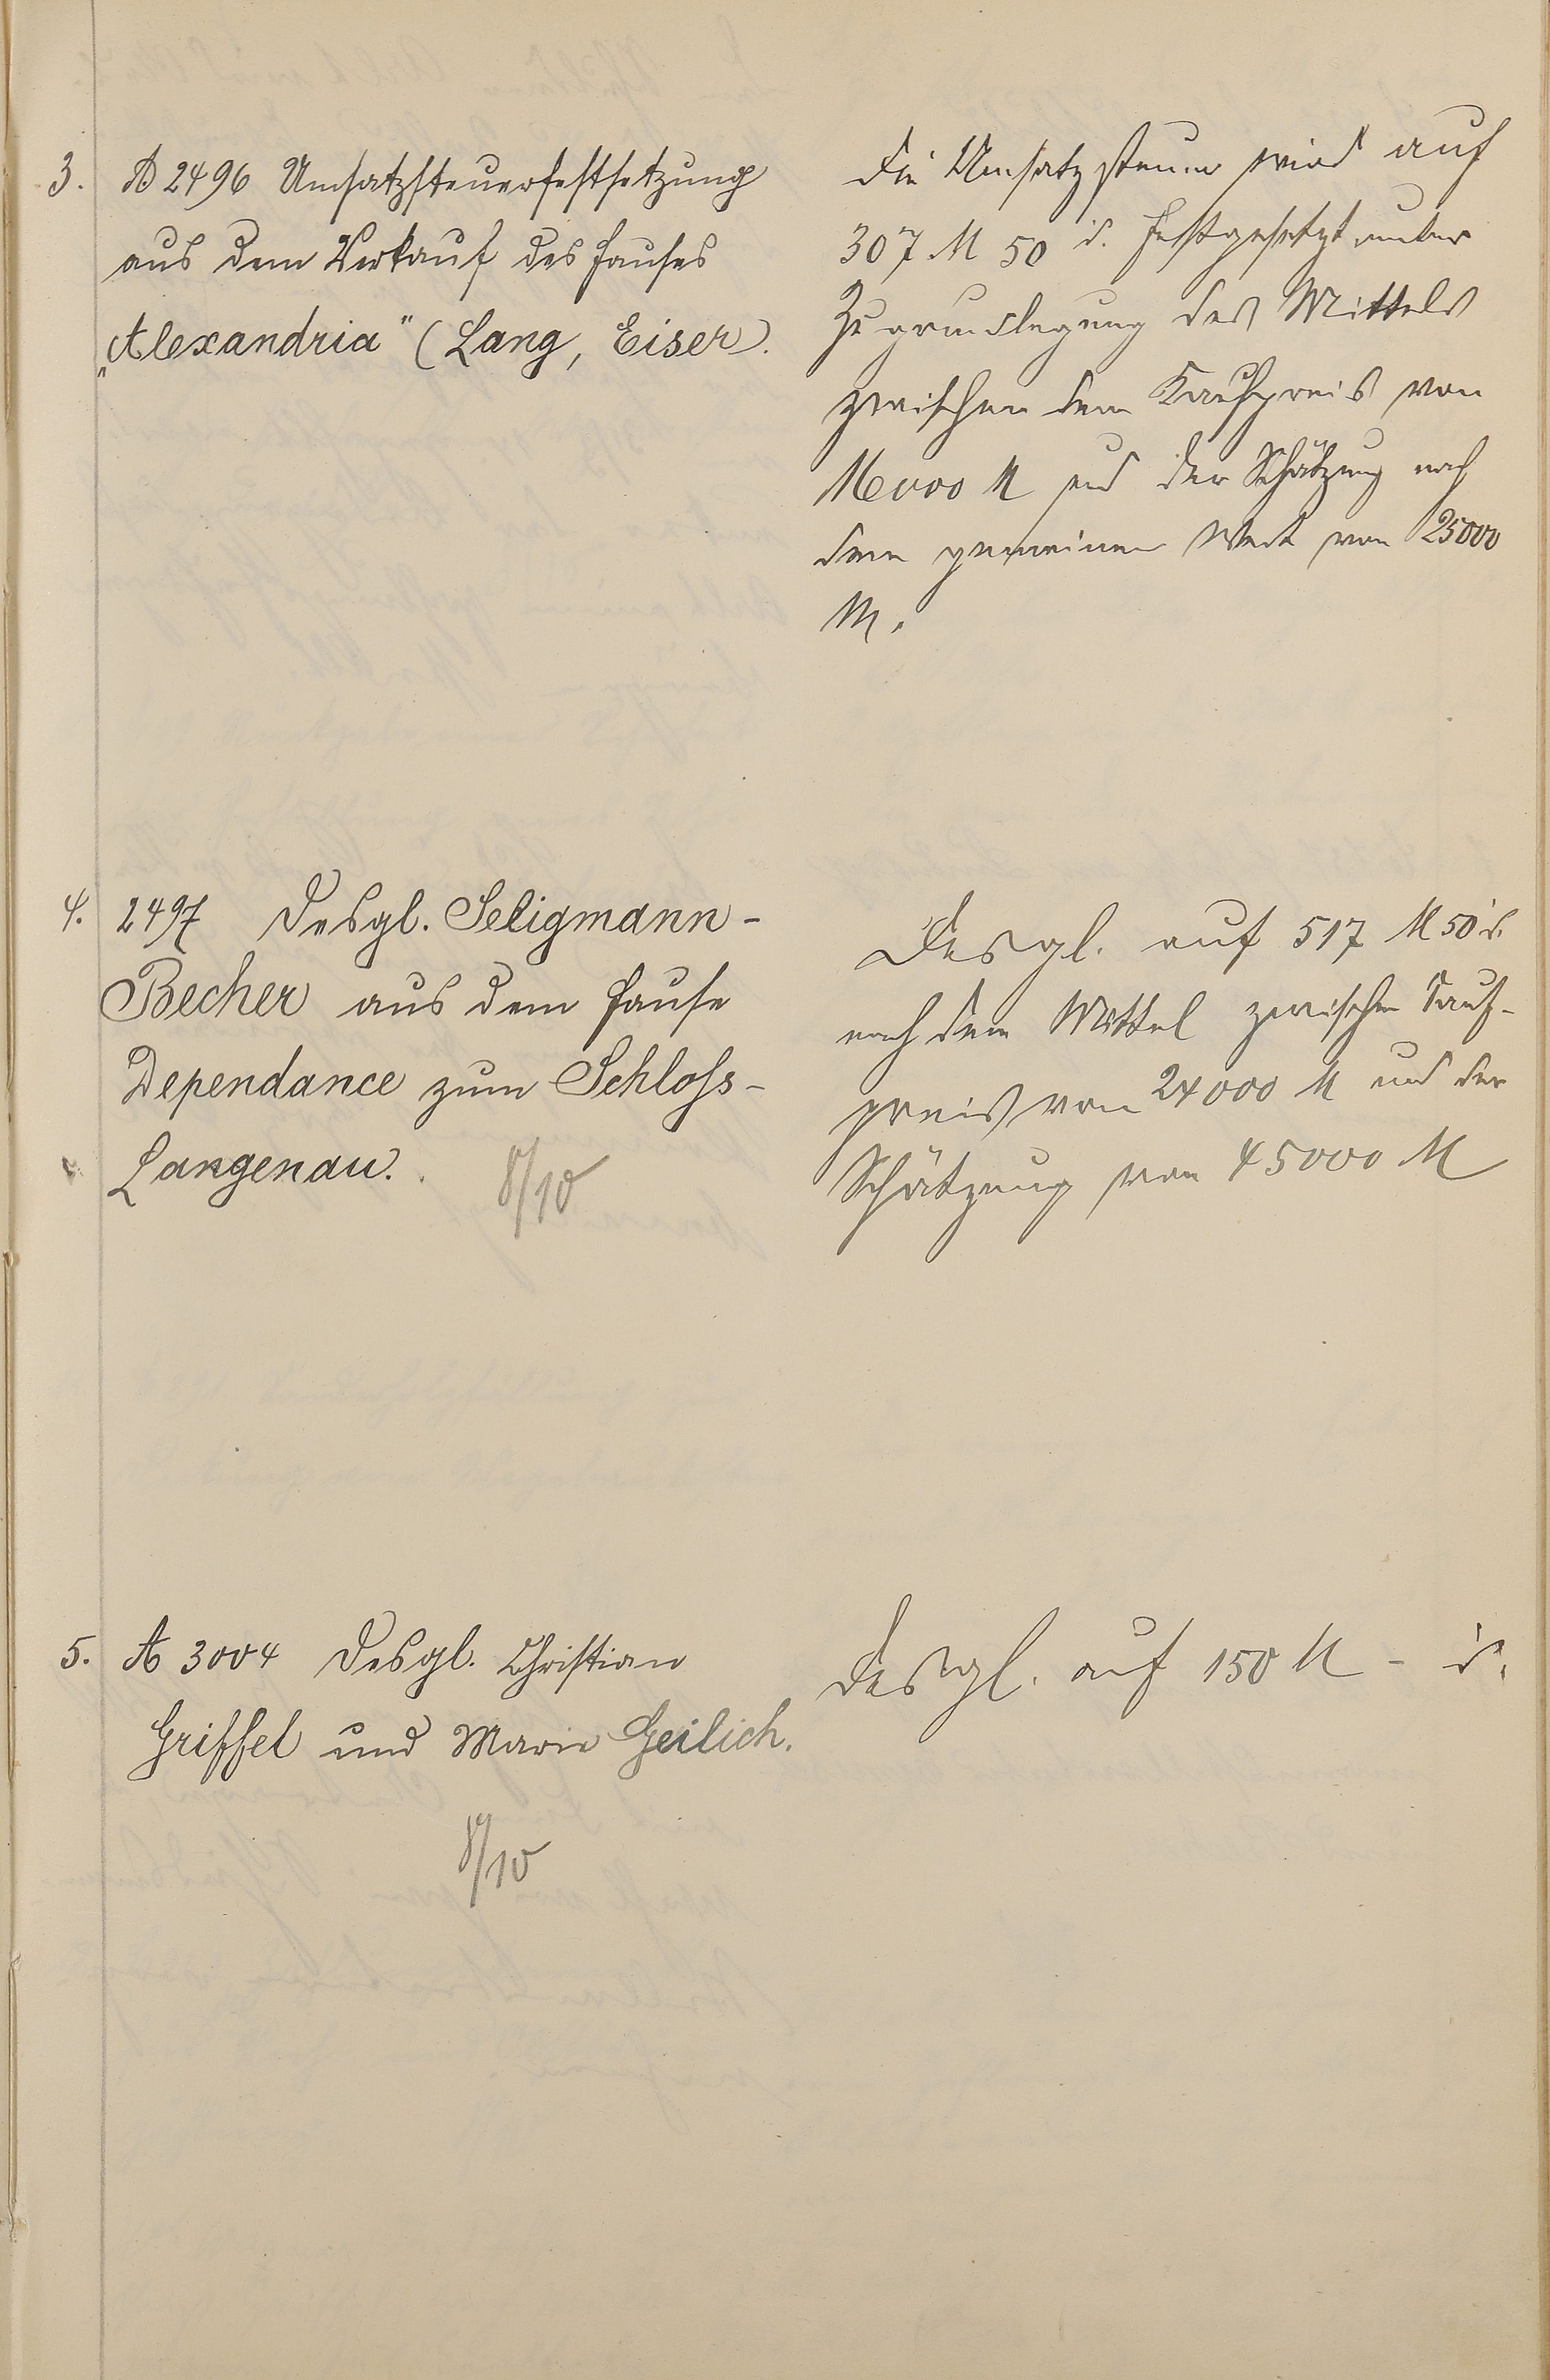 3. A 2496 Umsatzsteuerfestsetzung
aus dem Verkauf des Hauses
„Alexandria" (Lang, Eiser).
Die Umsatzsteuer wird auf
307 M 50 d. festgesetzt unter
Zugrundlegung des Mittels
zwischen dem Kaufpreis von
16000 M und der Schätzung nach
dem gemeinen Wert von 25000
M.
4. 2497 Desgl. Seligmann-
Becher aus dem Hause
Dependance zum Schloss-
Langenau.
8/10
Desgl. auf 517 M 50 d.
nach dem Mittel zwischen Kauf-
preis von 24000 M und der
Schätzung von 45000 M
5. A 3004 Desgl. Christian
Griffel und Marie Geilich.
8/10
Desgl. auf 150 M - d.